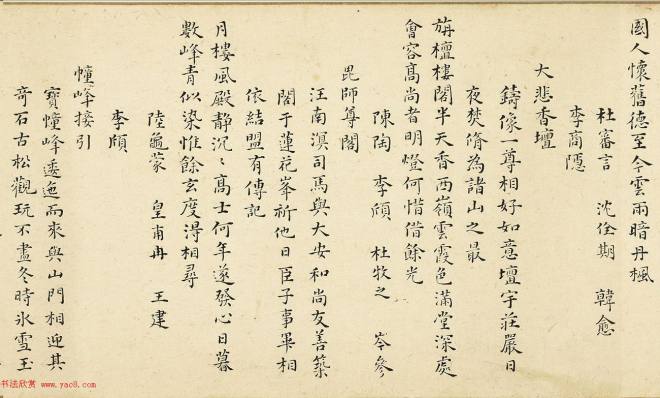 國人懷舊德至今雲雨暗丹楓
杜審言 沈佺期 韓愈
李商隱
大悲香壇
鑄像一尊相好如意壇宇莊嚴日
夜焚脩為諸山之最
旃檀樓閣半天香西嶺雲霞色滿堂深處
會容髙尚者明燈何惜借餘光
陳陶 李頎 杜牧之 岑參
毘師尊閣
汪南溟司馬與大安和尚友善築
閣于蓮花峯祈他日臣子事畢相
依結盟有傳記
月樓風殿静沉〻髙士何年遂發心日暮
數峰青似染惟餘玄度淂相尋
陸龜蒙 皇甫冉 王建
李頎
幢峰接引
寳幢峰逶迤而來與山門相迎其
竒石古松觀玩不盡冬時氷雪玉
书法欣赏 www.yac8.com